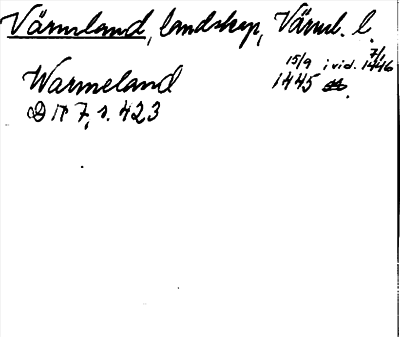 Värmland, landskap, Värml. l.
15/9 i vid. 7/1 1446
Warmeland 1445
D 7, s. 423